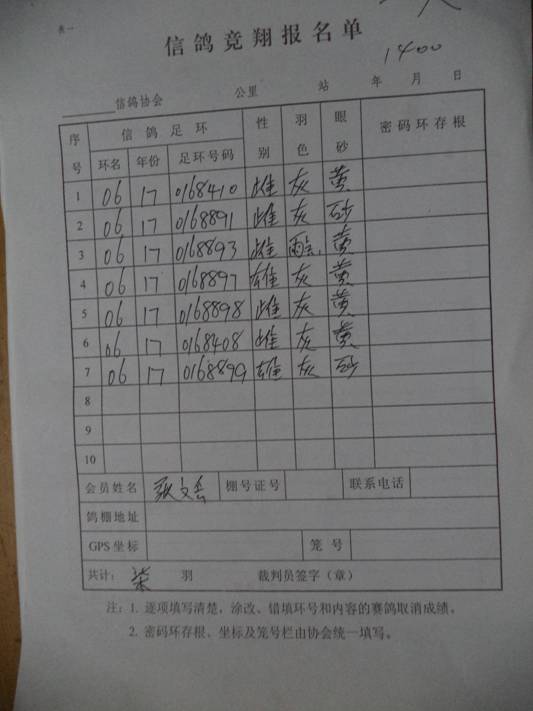 表一
信鸽竞翔报名单
1400
信鸽协会 公里 站 年 月 日
序号 信鸽足环 性别 羽色 眼砂 密码环存根
环名 年份 足环号码
1 06 17 0168410 雌 灰 黄
2 06 17 0168891 雌 灰 砂
3 06 17 0168893 雌 黄
4 06 17 0168897 雄 灰 黄
5 06 17 0168898 雌 灰 黄
6 06 17 0168408 雌 灰 黄
7 06 17 0168899 雄 灰 砂
8
9
10
会员姓名 棚号证号 联系电话
鸽棚地址
GPS坐标 笼号
共计: 柒 羽 裁判员签字(章)
注:1. 逐项填写清楚,涂改、错填环号和内容的赛鸽取消成绩。
2. 密码环存根、坐标及笼号栏由协会统一填写。